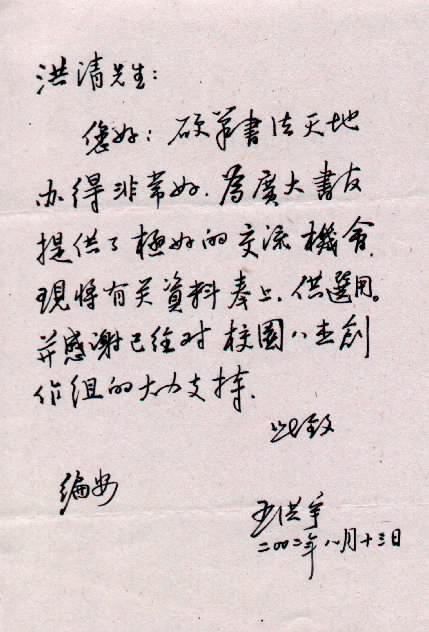 洪清先生：
您好：硬笔書法天地
办得非常好.為廣大書友
提供了極好的交流機會.
現将有关資料奉上.供選用。
并感谢已往对校園八杰創
作组的大力支持.
此致
编安
王洪宇
二00二年八月十三日